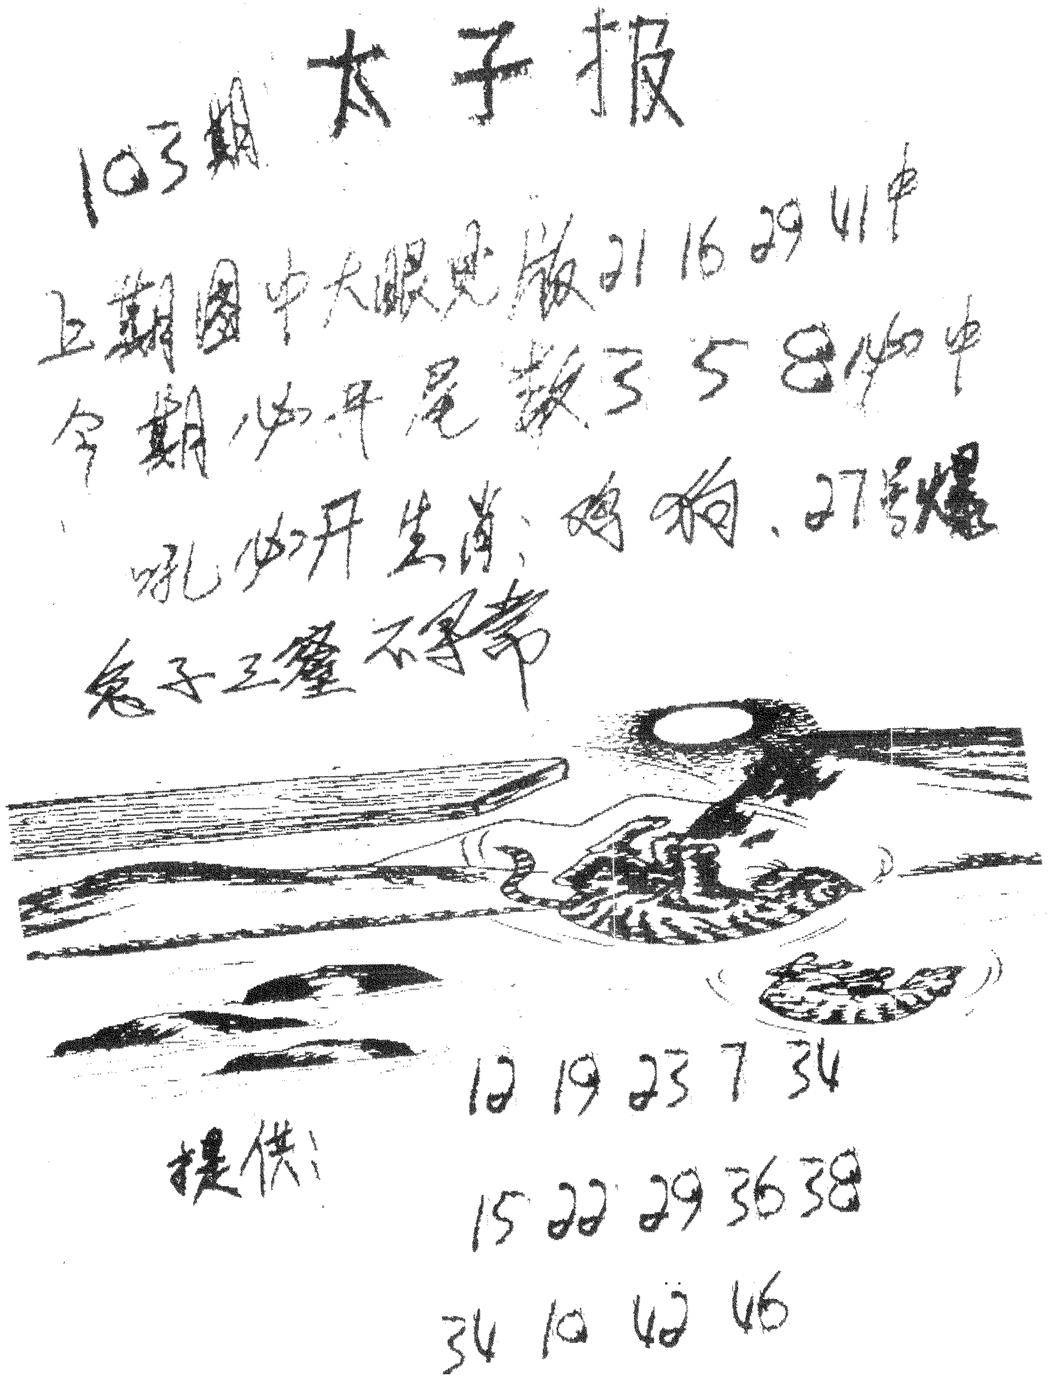 太子报
103期
上期图中大眼见版21 16 29 41中
今期必开尾数3 5 8必中
吼必开生肖:鸡狗、27号爆
兔子三窟不寻常
12 19 23 7 34
提供:
15 22 29 36 38
34 10 42 46